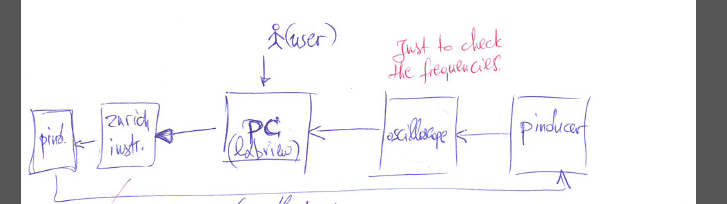 (user)
Just to check
the frequencies.
pind.
zurich
instr.
PC
(labview)
oscilloscope
pinducer